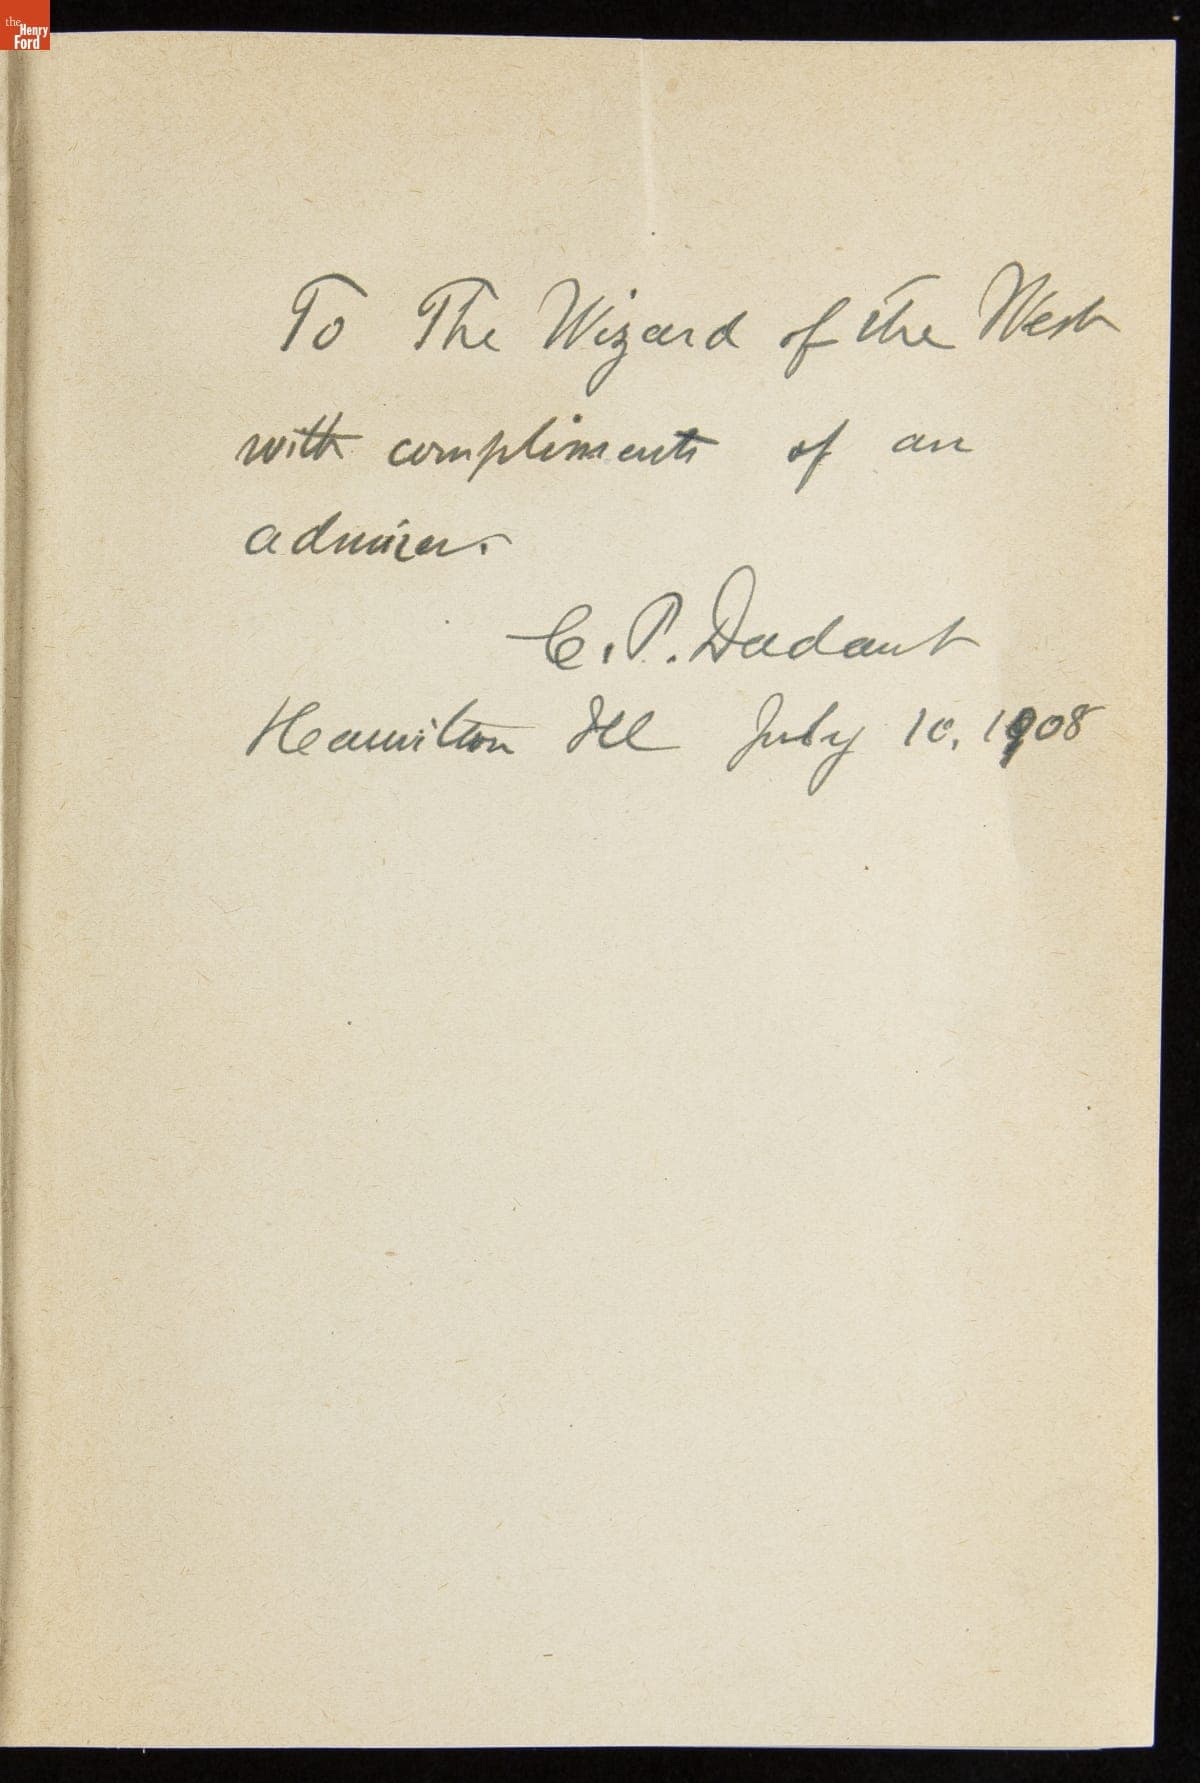 the
Henry
Ford
To The Wizard of the West
with compliments of an
admirer.
C. P. Dadant
Hamilton Ill July 10, 1908